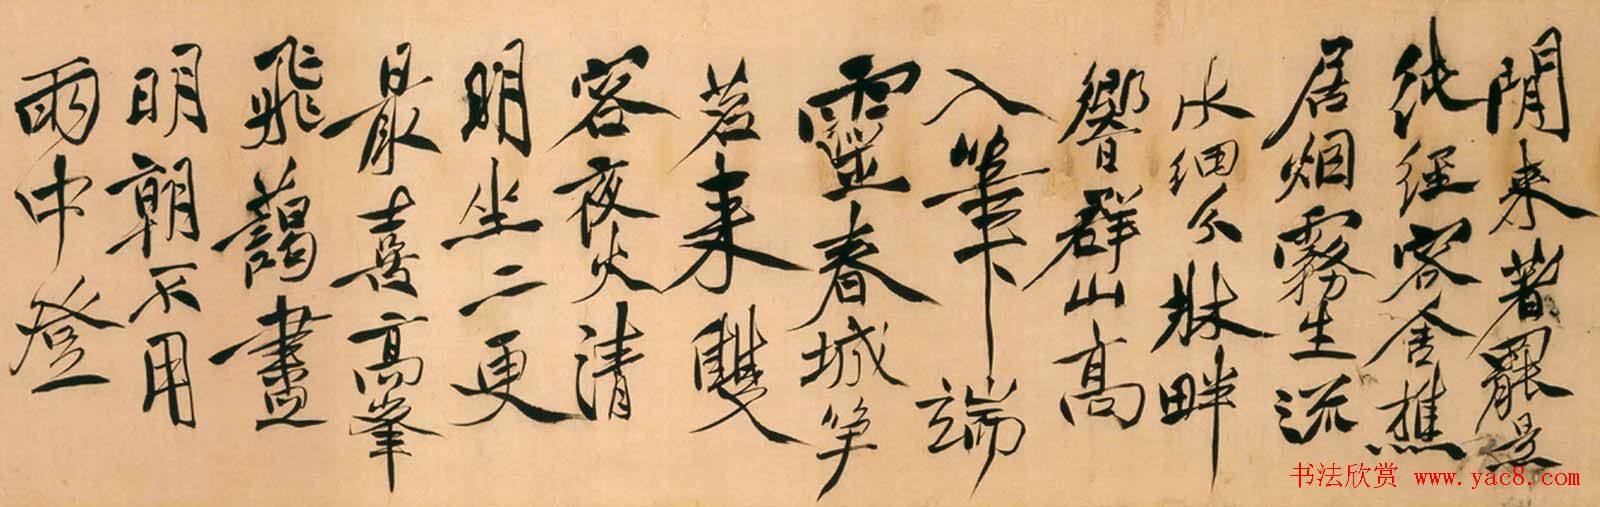 閒来著罷景
純經客舍樵
居烟霧生流
水細分牀畔
響群山高
入筆端
靈春城争
若来雙
客夜火清
明坐二更
最喜高峯
飛藹盡
明朝不用
雨中登
书法欣赏 www.yac8.com